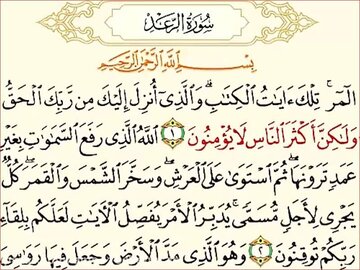 سُورَةُ الرَّعْدِ
بِسْمِ ٱللَّهِ ٱلرَّحْمَٰنِ ٱلرَّحِيمِ
الٓمٓر ۚ تِلْكَ ءَايَٰتُ ٱلْكِتَٰبِ ۗ وَٱلَّذِىٓ أُنزِلَ إِلَيْكَ مِن رَّبِّكَ ٱلْحَقُّ
وَلَٰكِنَّ أَكْثَرَ ٱلنَّاسِ لَا يُؤْمِنُونَ ١ ٱللَّهُ ٱلَّذِى رَفَعَ ٱلسَّمَٰوَٰتِ بِغَيْرِ
عَمَدٍ تَرَوْنَهَا ۖ ثُمَّ ٱسْتَوَىٰ عَلَى ٱلْعَرْشِ ۖ وَسَخَّرَ ٱلشَّمْسَ وَٱلْقَمَرَ ۖ كُلٌّ
يَجْرِى لِأَجَلٍ مُّسَمًّى ۚ يُدَبِّرُ ٱلْأَمْرَ يُفَصِّلُ ٱلْءَايَٰتِ لَعَلَّكُم بِلِقَآءِ
رَبِّكُمْ تُوقِنُونَ ٢ وَهُوَ ٱلَّذِى مَدَّ ٱلْأَرْضَ وَجَعَلَ فِيهَا رَوَٰسِىَ